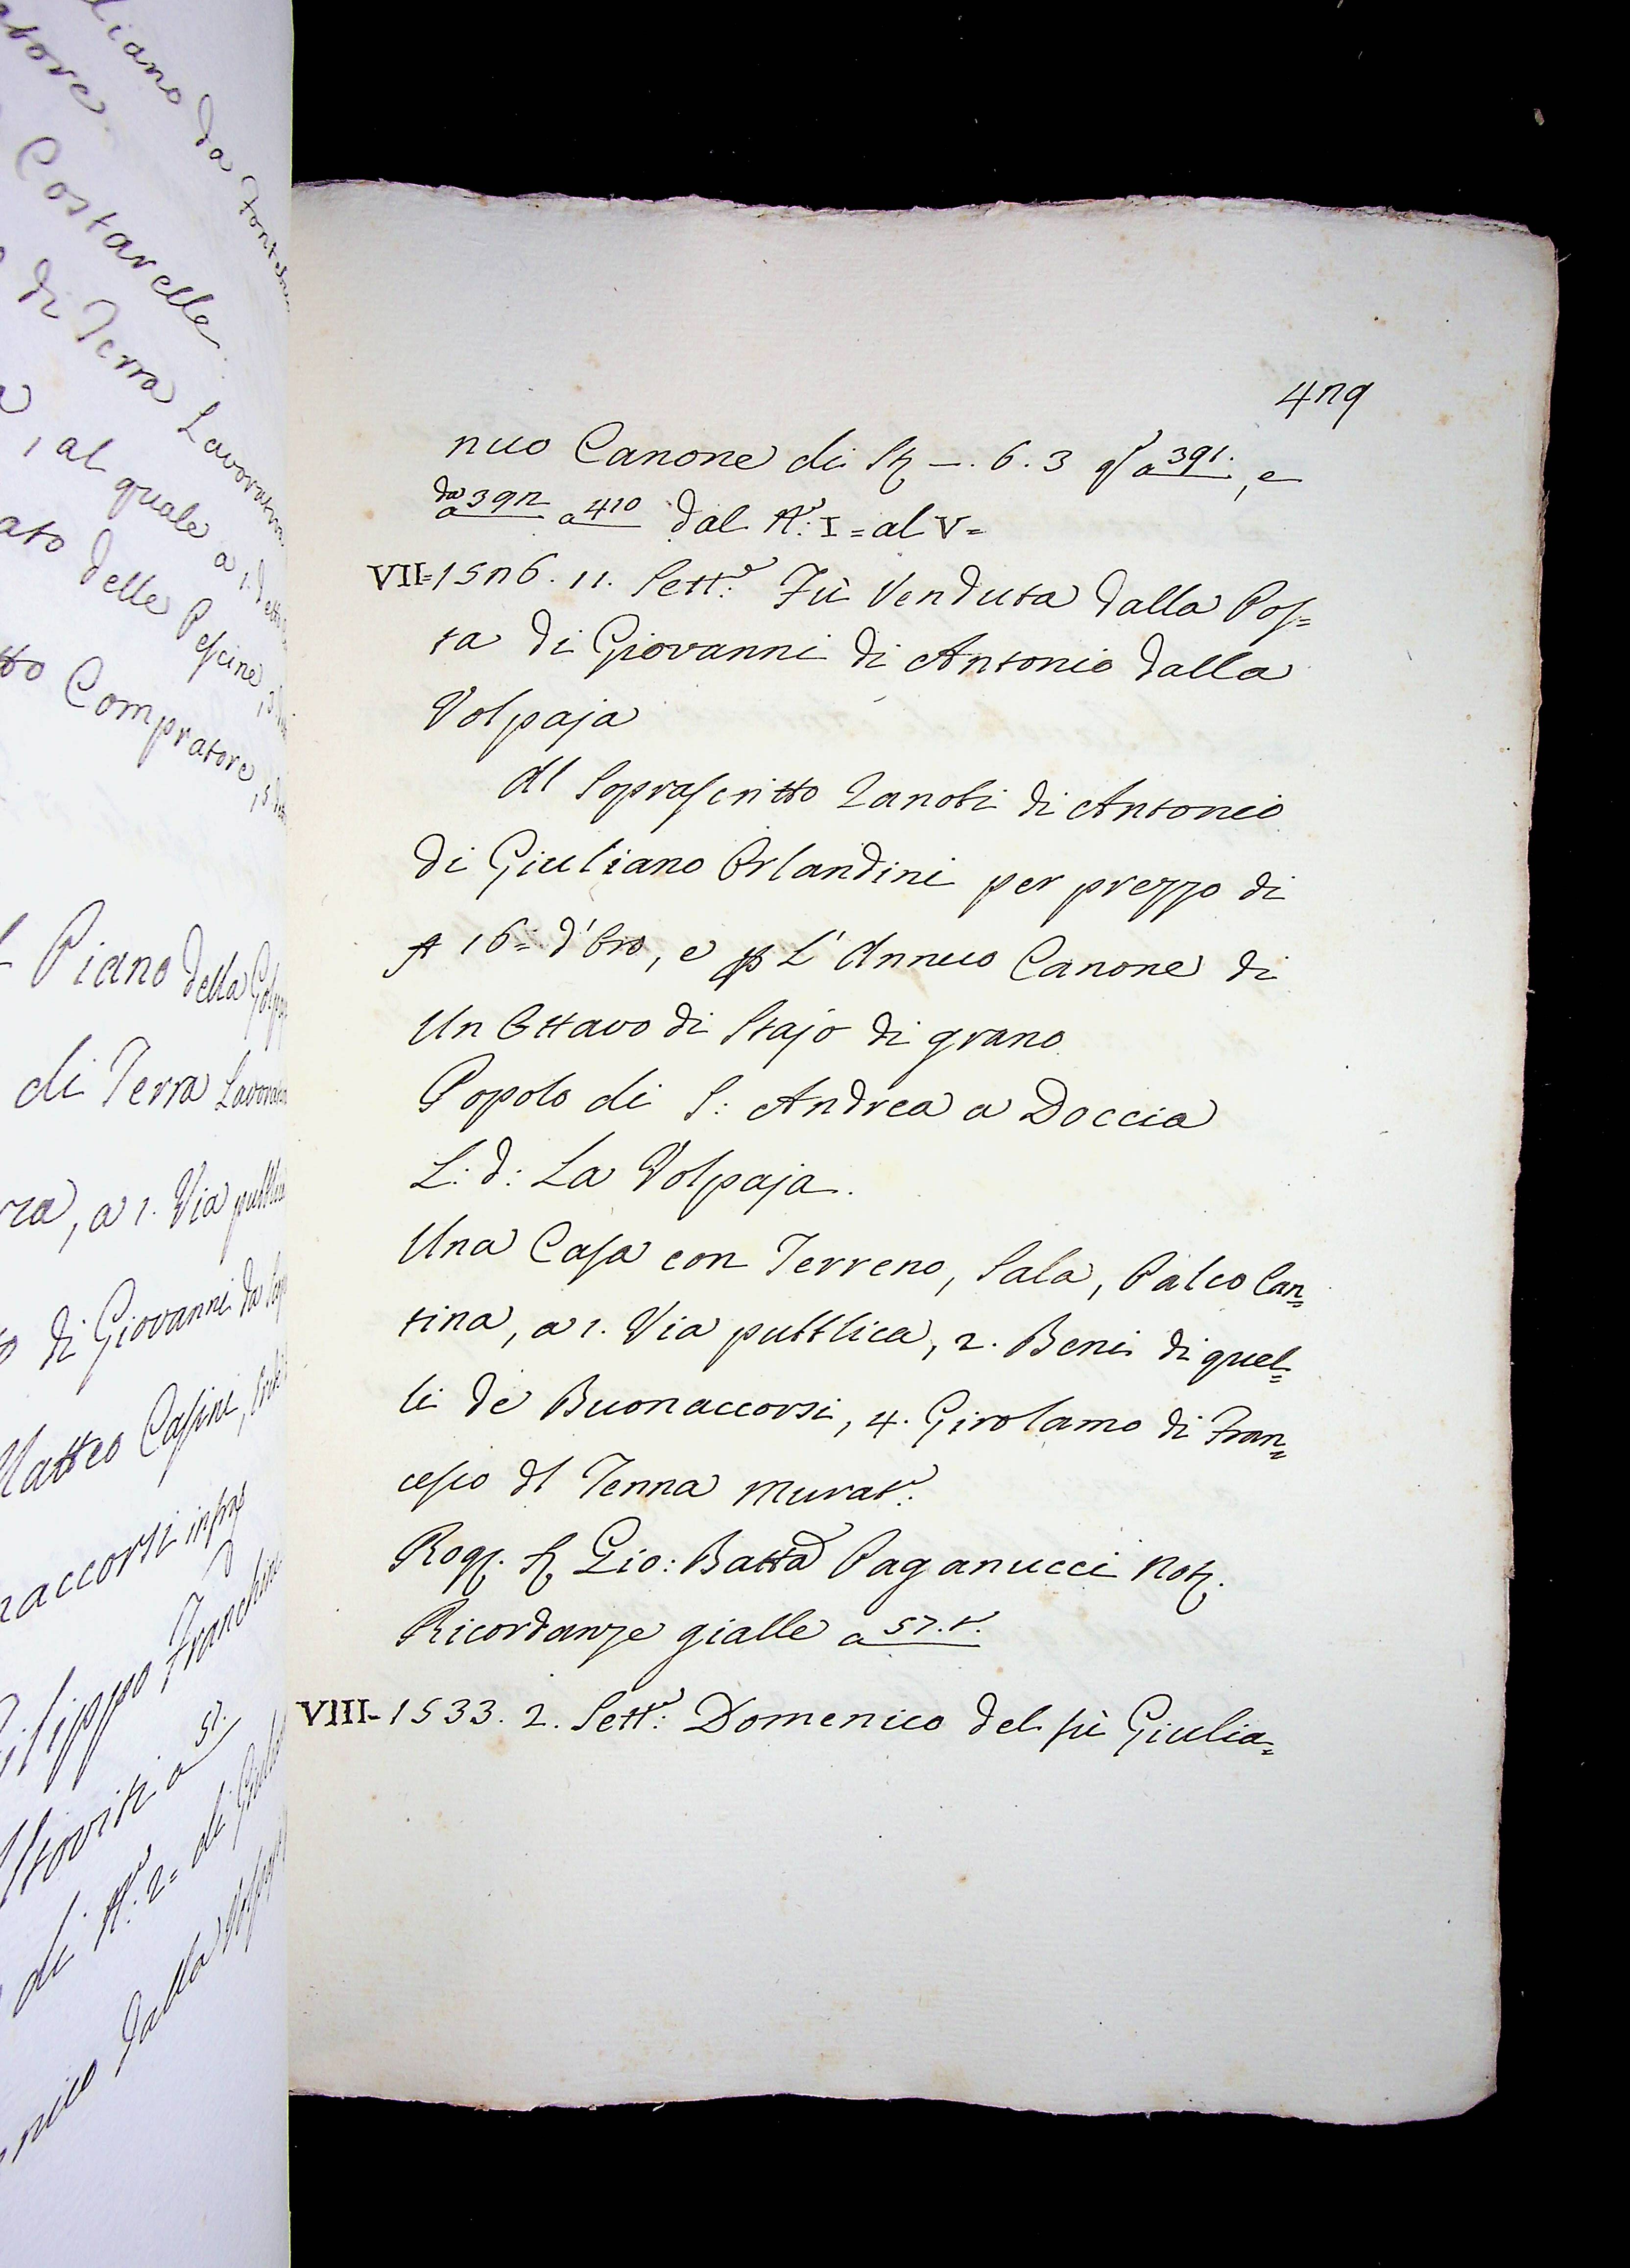 liano da
atore
Costarelle
di Terra Lavorativa
, al quale a 1. detto
ato delle Pescine,
tto Compratore,
Piano della
di Terra Lavorat
rra, a 1. Via pubblica
o di Giovanni da
Matteo Casini,
naccorsi
Filippo Franchini
ltoviti a 57.
di N.º 2= di
nico dalla
429
nuo Canone di St. —. 6. 3 a 391., e
da 392 a 410 dal N.º I= al V=
VII= 1526. 11. Sett.e Fù Venduta dalla Pos=
ta di Giovanni di Antonio dalla
Volpaja
Al Soprascritto Zanobi di Antonio
di Giuliano Orlandini per prezzo di
16= d'Oro, e p L'Annuo Canone di
Un Ottavo di Stajo di grano
Popolo di S: Andrea a Doccia
L: d: La Volpaja.
Una Casa con Terreno, Sala, Palco Can=
tina, a 1. Via pubblica, 2. Beni di quel=
li de Buonaccorsi, 4. Girolamo di Fran=
cesco dl Tenna Murat.e
Rog. S. Gio: Batta Paganucci Not.
Ricordanze gialle a 57. t.
VIII- 1533. 2. Sett.e Domenico del fù Giulia=